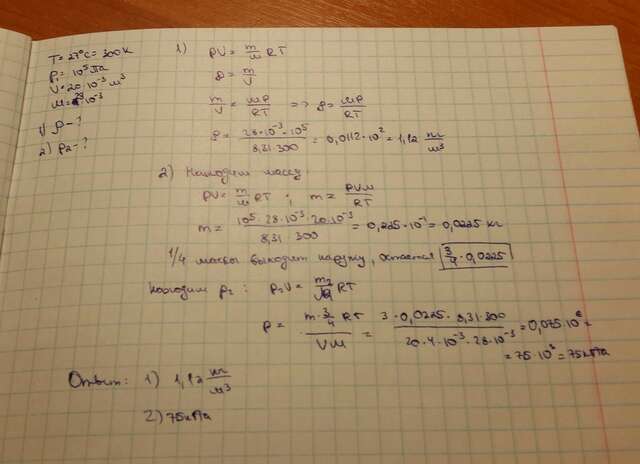 T = 27°C = 300K
p₁ = 10⁵ Па
V = 20·10⁻³ м³
M = 28·10⁻³
1) ρ - ?
2) p₂ - ?
1) pV = m/M RT
ρ = m/V
m/V = Mp/RT => ρ = Mp/RT
ρ = 28·10⁻³·10⁵ / 8,31·300 = 0,0112·10² = 1,12 кг/м³
2) Находим массу:
pV = m/M RT ; m = pVM/RT
m = 10⁵·28·10⁻³·20·10⁻³ / 8,31·300 = 0,225·10⁻¹ = 0,0225 кг
1/4 массы выходит наружу, остается 3/4·0,0225
Находим p₂ : p₂V = m₂/M RT
p = m·3/4 RT / VM = 3·0,0225·8,31·300 / 20·4·10⁻³·28·10⁻³ = 0,075·10⁶ =
= 75·10³ = 75 кПа
Ответ: 1) 1,12 кг/м³
2) 75 кПа